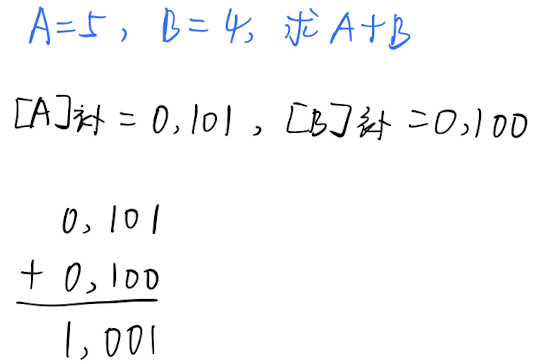 A=5, B=4, 求A+B
[A]补 = 0,101, [B]补 =0,100
0,101
+ 0,100
1,001